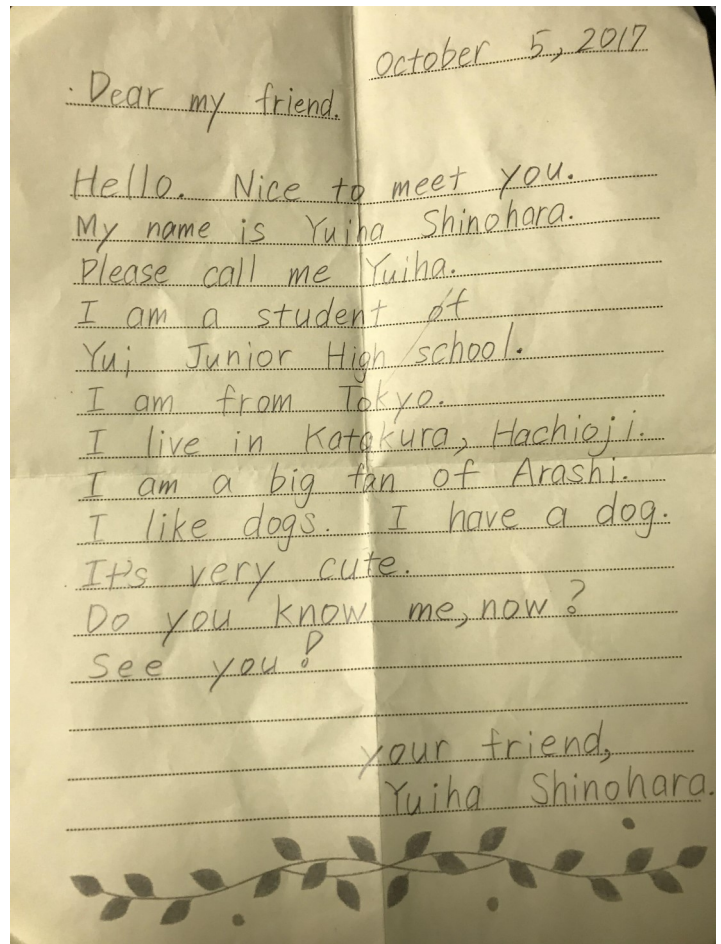 October 5, 2017
Dear my friend.
Hello. Nice to meet you.
My name is Yuiha Shinohara.
Please call me Yuiha.
I am a student of
Yui Junior High school.
I am from Tokyo.
I live in Katakura, Hachioji.
I am a big fan of Arashi.
I like dogs. I have a dog.
It's very cute.
Do you know me, now?
See you!
your friend,
Yuiha Shinohara.